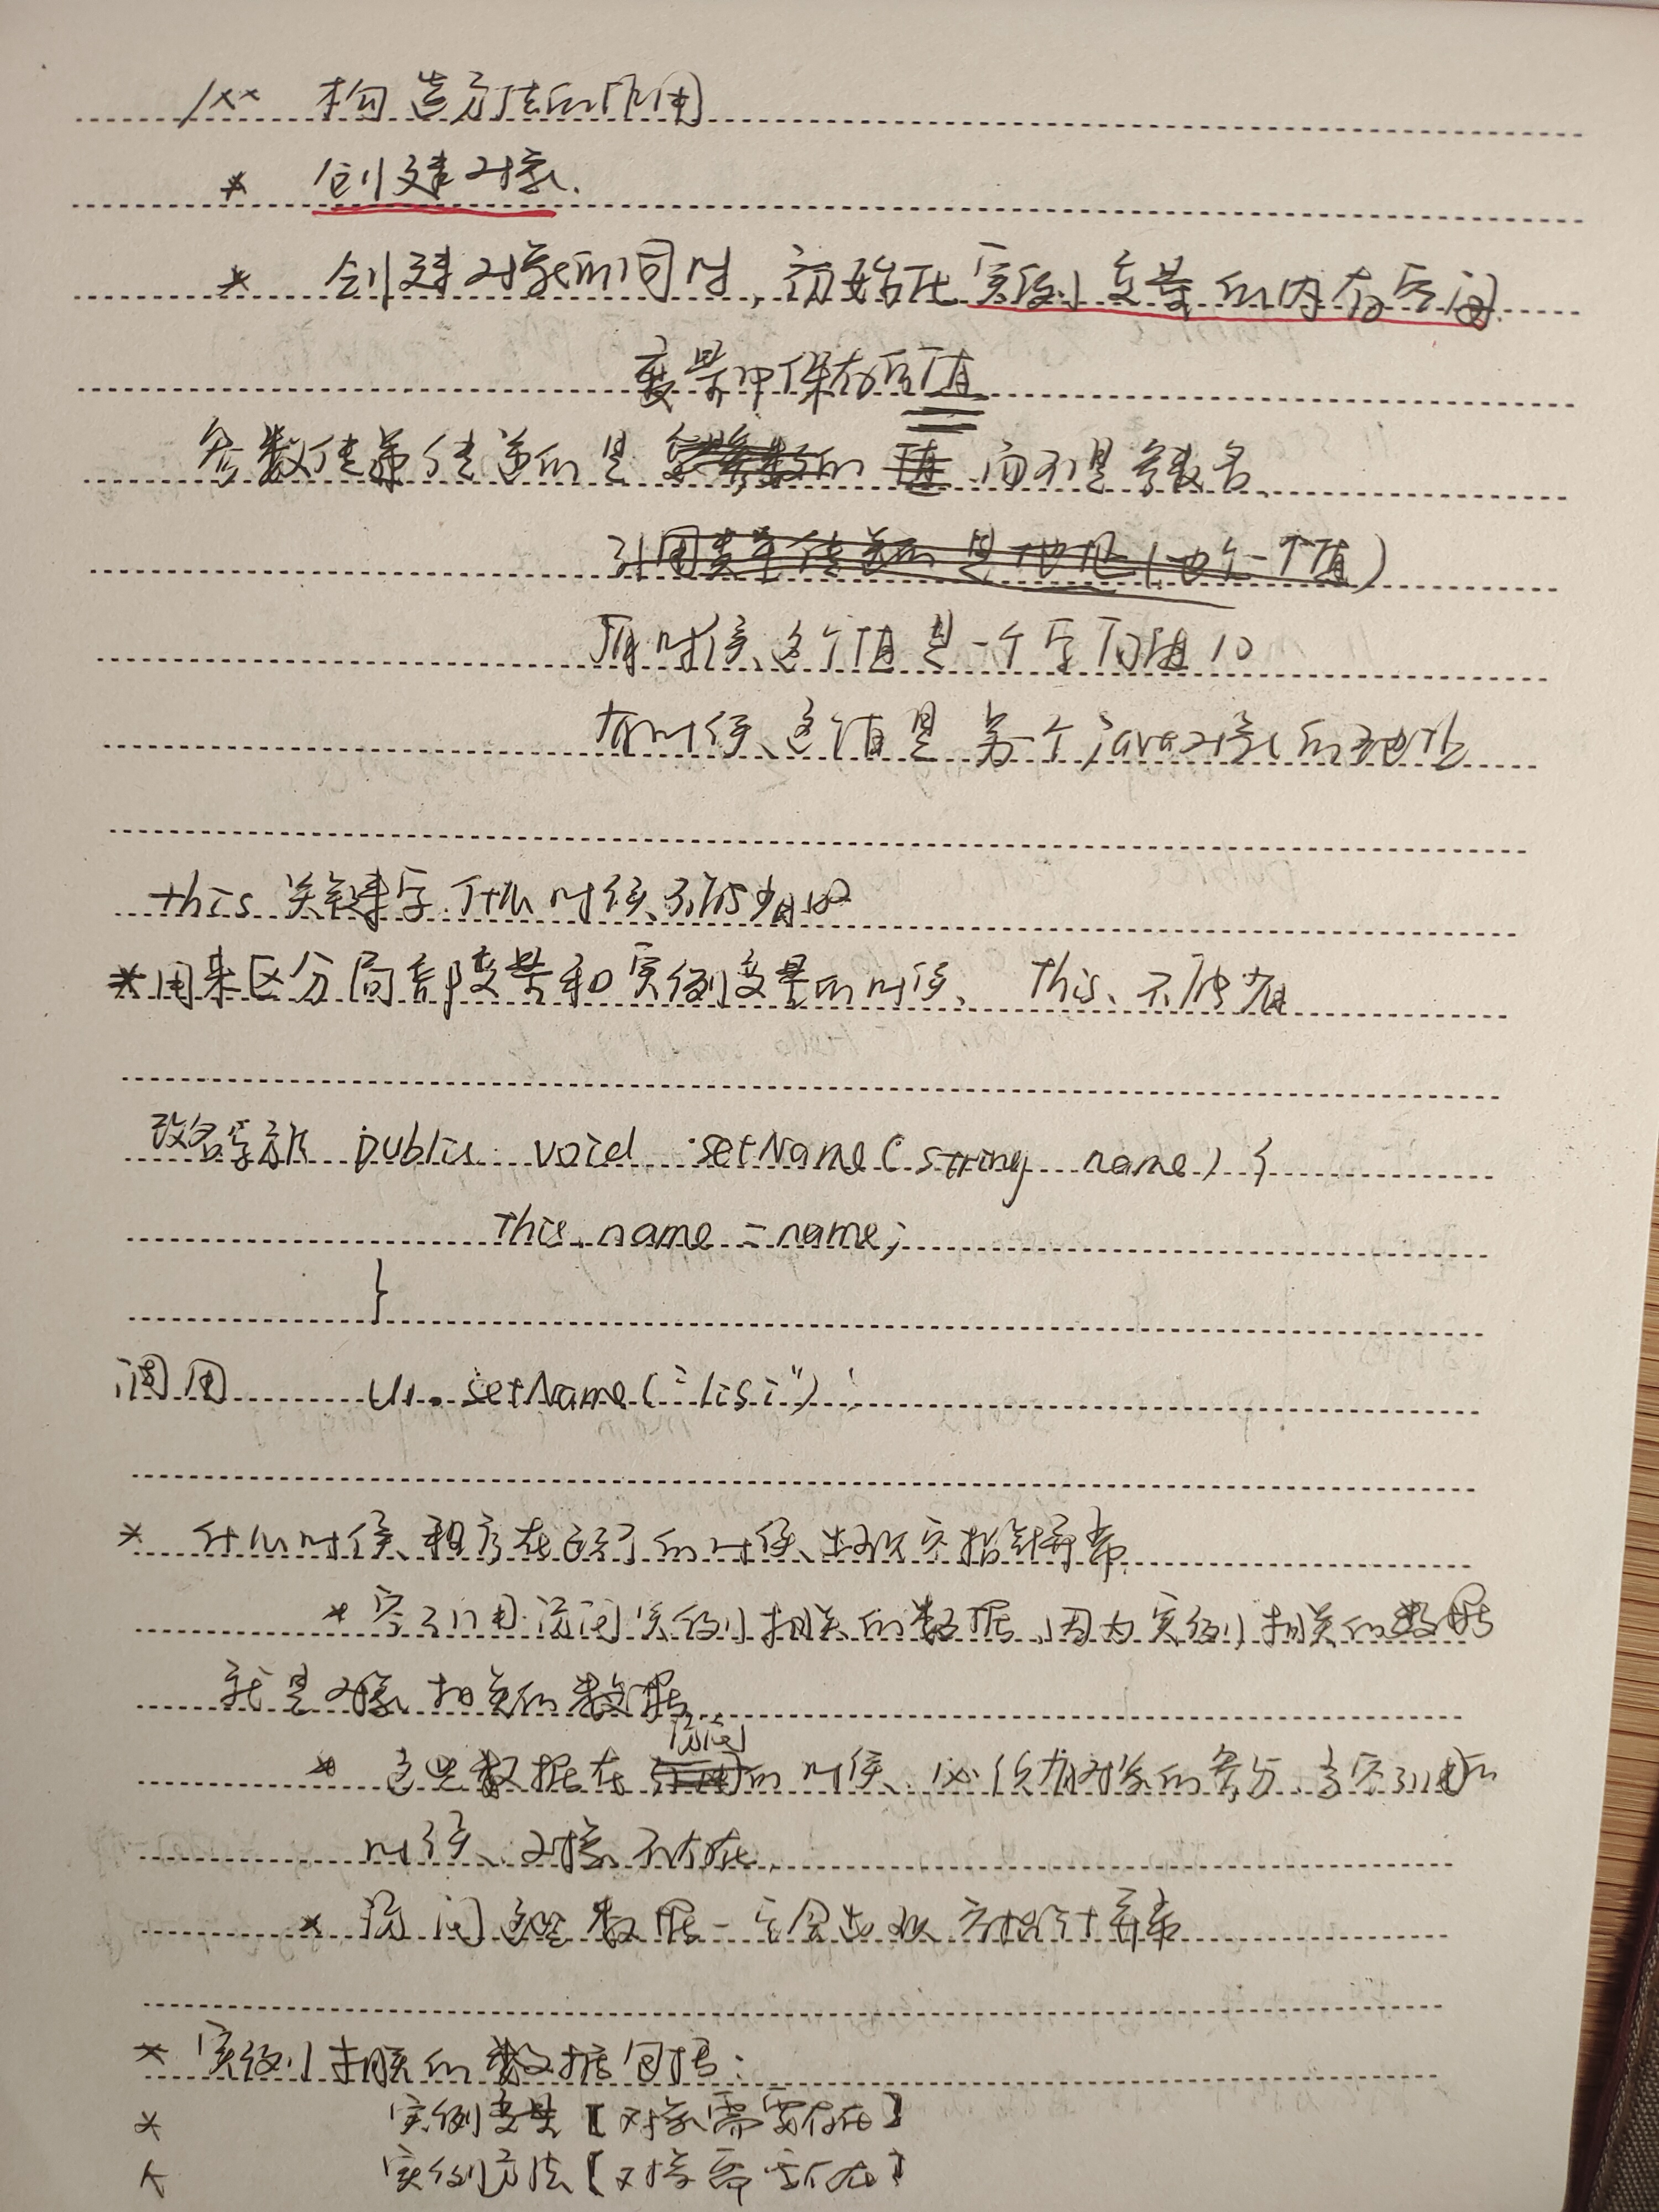 /** 构造方法的作用
* 创建对象.
* 创建对象的同时,初始化实例变量的内存空间.
变量中保存的值
参数传递传递的是 的 值 而不是参数名
引用类型传递的是地址(也是一个值)
有时候这个值是一个字面值10
有时候、这个值是 另一个java对象的地址
this 关键字 什么时候不能省略
*用来区分局部变量和实例变量的时候、 this、不能省
改名字方法 public void setName(string name) {
this.name = name;
}
调用 u1.setName("lisi");
* 什么时候、程序在运行的时候、出现空指针异常.
* 空引用访问实例相关的数据,因为实例相关的数据
就是对象相关的数据.
访问
* 这些数据在 的时候、必须有对象的参与、当空引用的
时候、对象不存在.
* 访问这些数据一定会出现空指针异常
* 实例相关的数据包括:
* 实例变量【对象需要存在】
* 实例方法【对象需要存在】